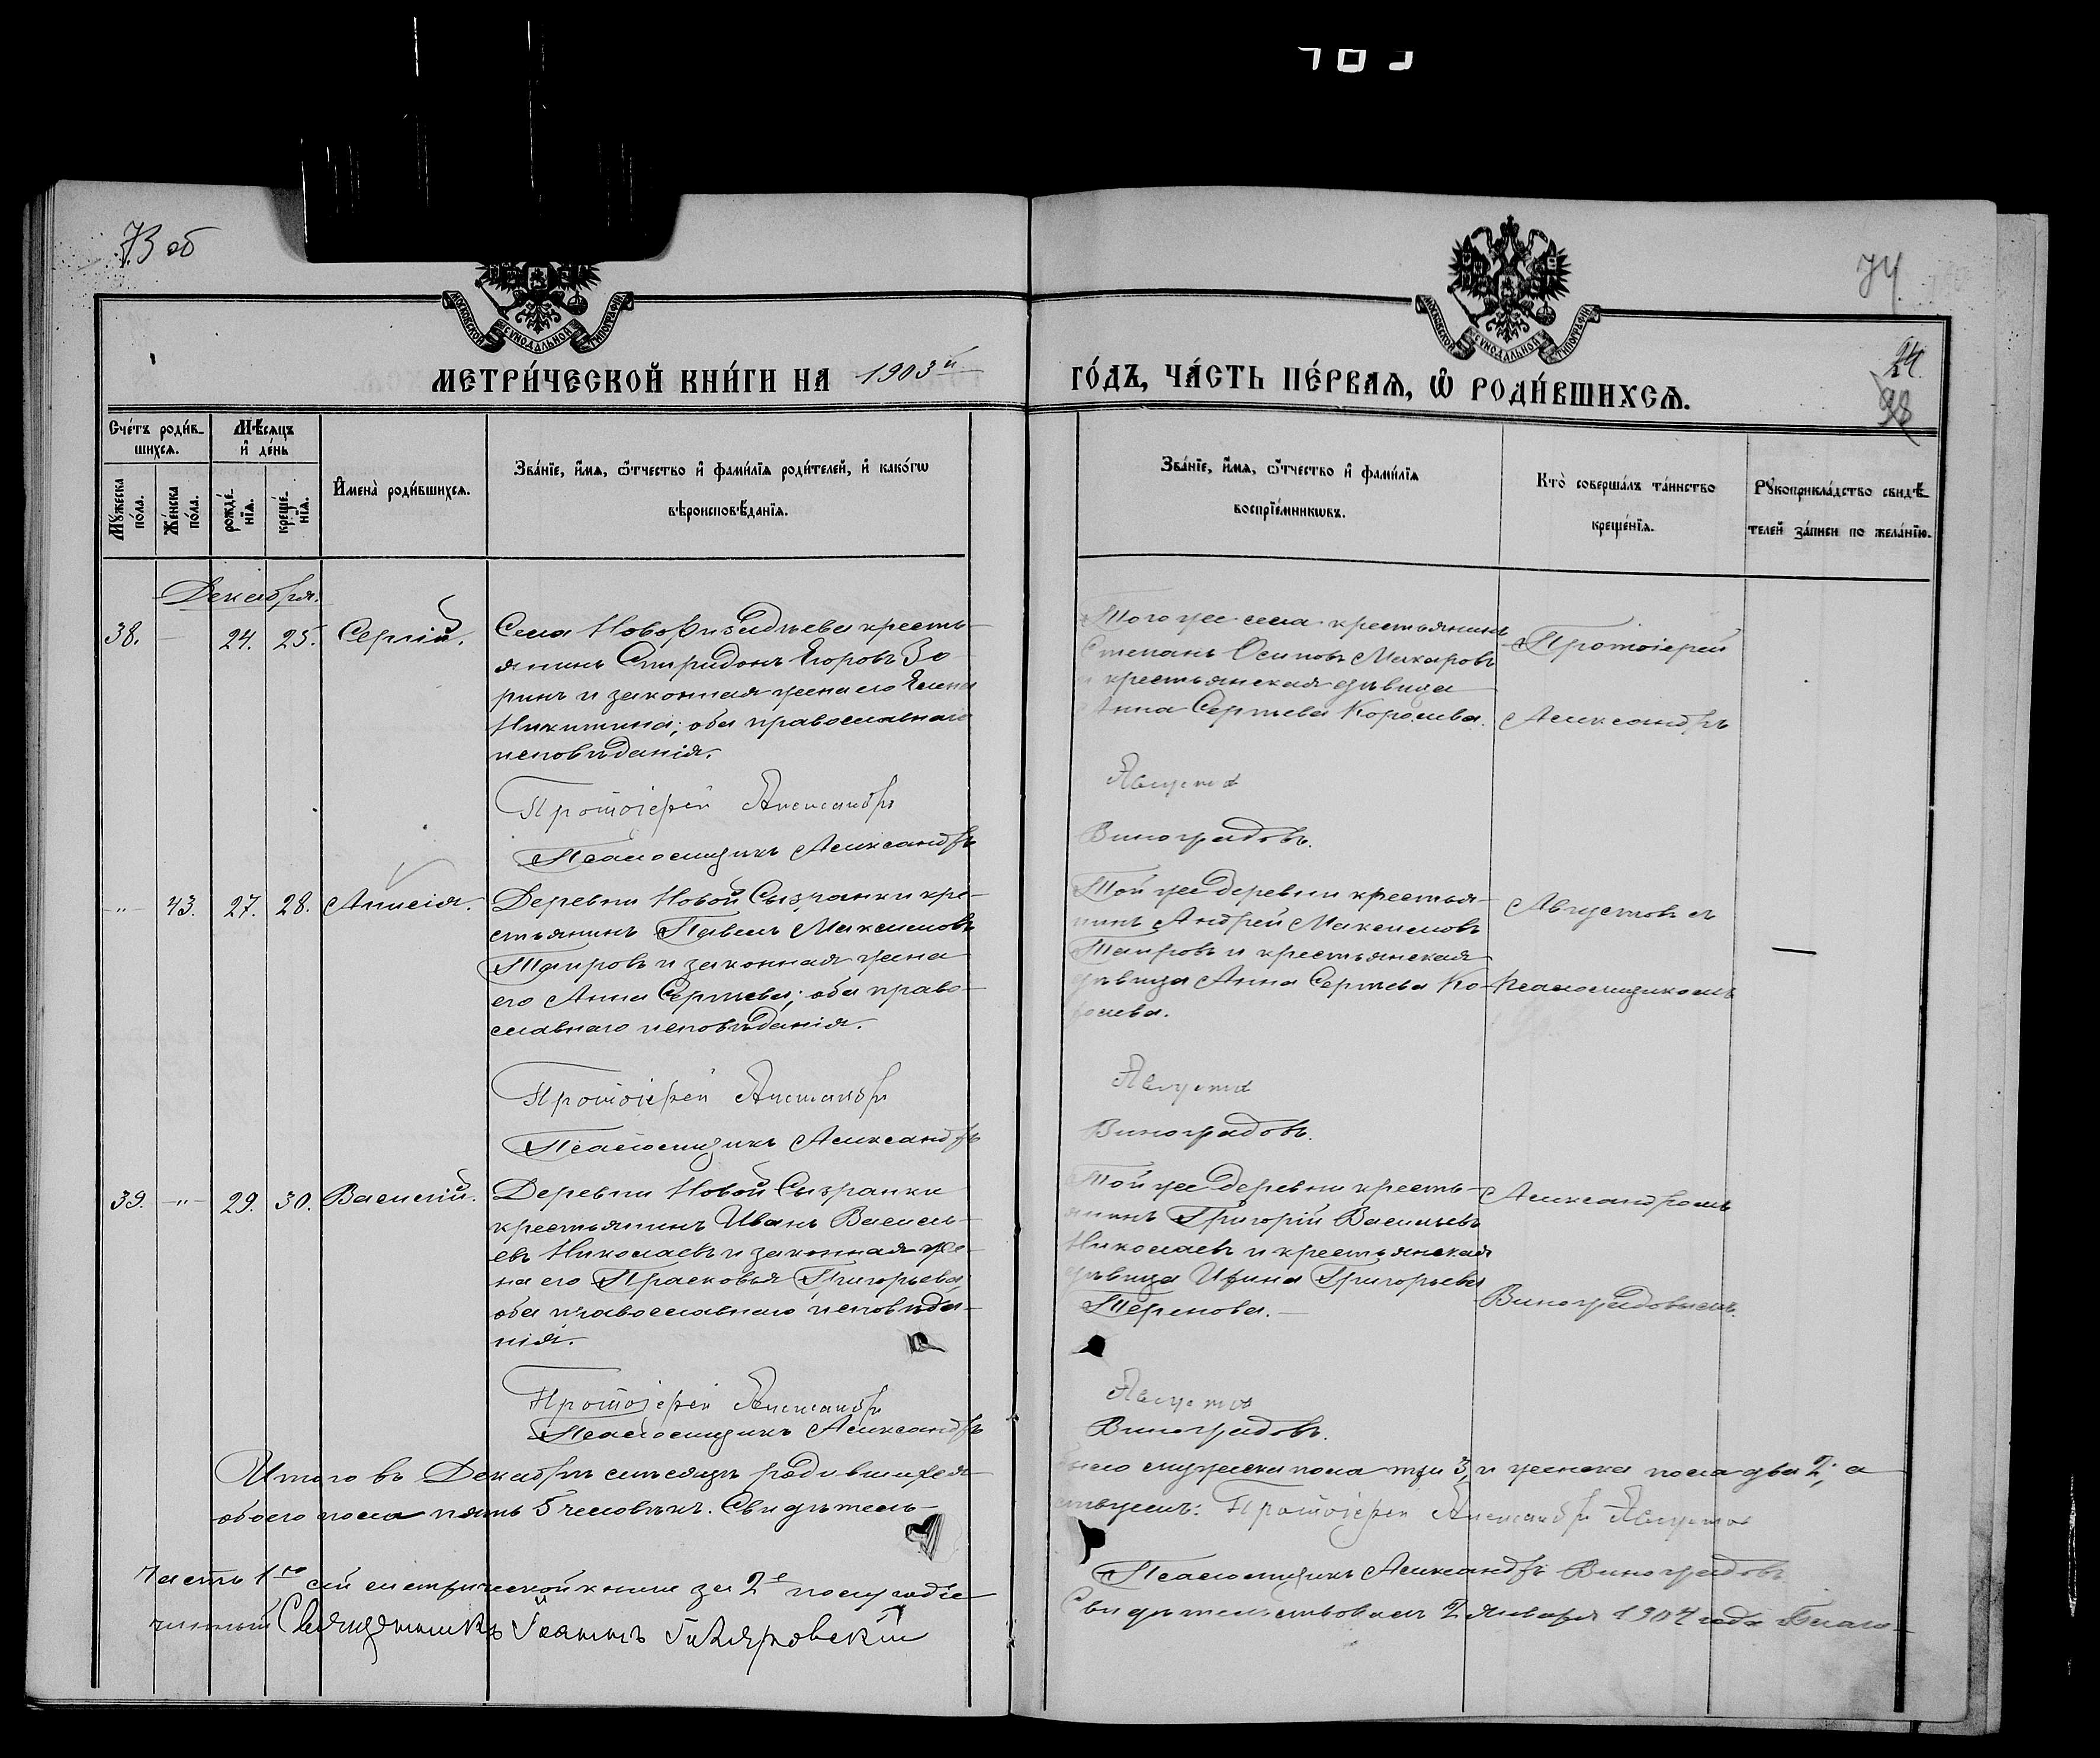 73 об
74
24.
98
МЕТРИ́ЧЕСКОЙ КНИ́ГИ НА 1903й
ГО́ДЪ, ЧА́СТЬ ПЕ́РВАЯ, Ѡ҆ РОДИ́ВШИХСЯ.
МОСКОВСКОЙ СѴНОДАЛЬНОЙ ТИПОГРАФІИ
МОСКОВСКОЙ СѴНОДАЛЬНОЙ ТИПОГРАФІИ
Сче́тъ роди́в-
шихся.
Мѣ́сяцъ
и҆ де́нь
Мꙋ́жеска
по́ла.
Же́нска
по́ла.
рожде́-
нїя.
креще́-
нїя.
И҆мена̀ роди́вшихся.
Зва́нїе, и҆́мя, ѻ҆́тчество и҆ фами́лїя роди́телей, и҆ како́гѡ
вѣроисповѣ́данїя.
Зва́нїе, и҆́мя, ѻ҆́тчество и҆ фами́лїя
воспрїе́мникѡвъ.
Кто̀ соверша́лъ та́инство
креще́нїя.
Рꙋкоприкла́дство свидѣ́-
телей за́писи по жела́нїю.
Декабря.
38. — 24. 25. Сергій.
Села Новофизадѣева кресть-
янинъ Спиридонъ Егоровъ Зо-
ринъ и законная жена его Елена
Никитина; оба православнаго
исповѣданія.
Протоіерей Александръ
Псаломщикъ Александръ
Того же села крестьянинъ
Степанъ Осиповъ Макаровъ
и крестьянская дѣвица
Анна Сергѣева Королева.
Августовъ
Виноградовъ.
Протоіерей
Александръ
-"- 43. 27. 28. Анисія.
Деревни Новой Сызранки кре-
стьянинъ Павелъ Максимовъ
Таировъ и законная жена
его Анна Сергѣева; оба право-
славнаго исповѣданія.
Протоіерей Александръ
Псаломщикъ Александръ
Той же деревни крестья-
нинъ Андрей Максимовъ
Таировъ и крестьянская
дѣвица Анна Сергѣева Ко-
ролева.
Августовъ
Виноградовъ.
Августовъ съ
псаломщикомъ
39. -"- 29. 30. Василій.
Деревни Новой Сызранки
крестьянинъ Иванъ Василь-
евъ Николаевъ и законная же-
на его Прасковья Григорьева;
оба православнаго исповѣда-
нія.
Протоіерей Александръ
Псаломщикъ Александръ
Той же деревни кресть-
янинъ Григорій Васильевъ
Николаевъ и крестьянская
дѣвица Ирина Григорьева
Терехова. —
Августовъ
Виноградовъ.
Александромъ
Виноградовымъ.
Итого въ Декабрѣ мѣсяцѣ родившихся
было мужеска пола три 3, и женска пола два 2; а
обоего пола пять 5 человѣкъ. Свидѣтель-
ствуемъ: Протоіерей Александръ Августовъ
Псаломщикъ Александръ Виноградовъ.
Часть 1ю сей метрической книги за 2е полугодіе
Свидѣтельствовалъ 2 Января 1904 года Благо-
чинный Священникъ Іоаннъ Гиляровскій